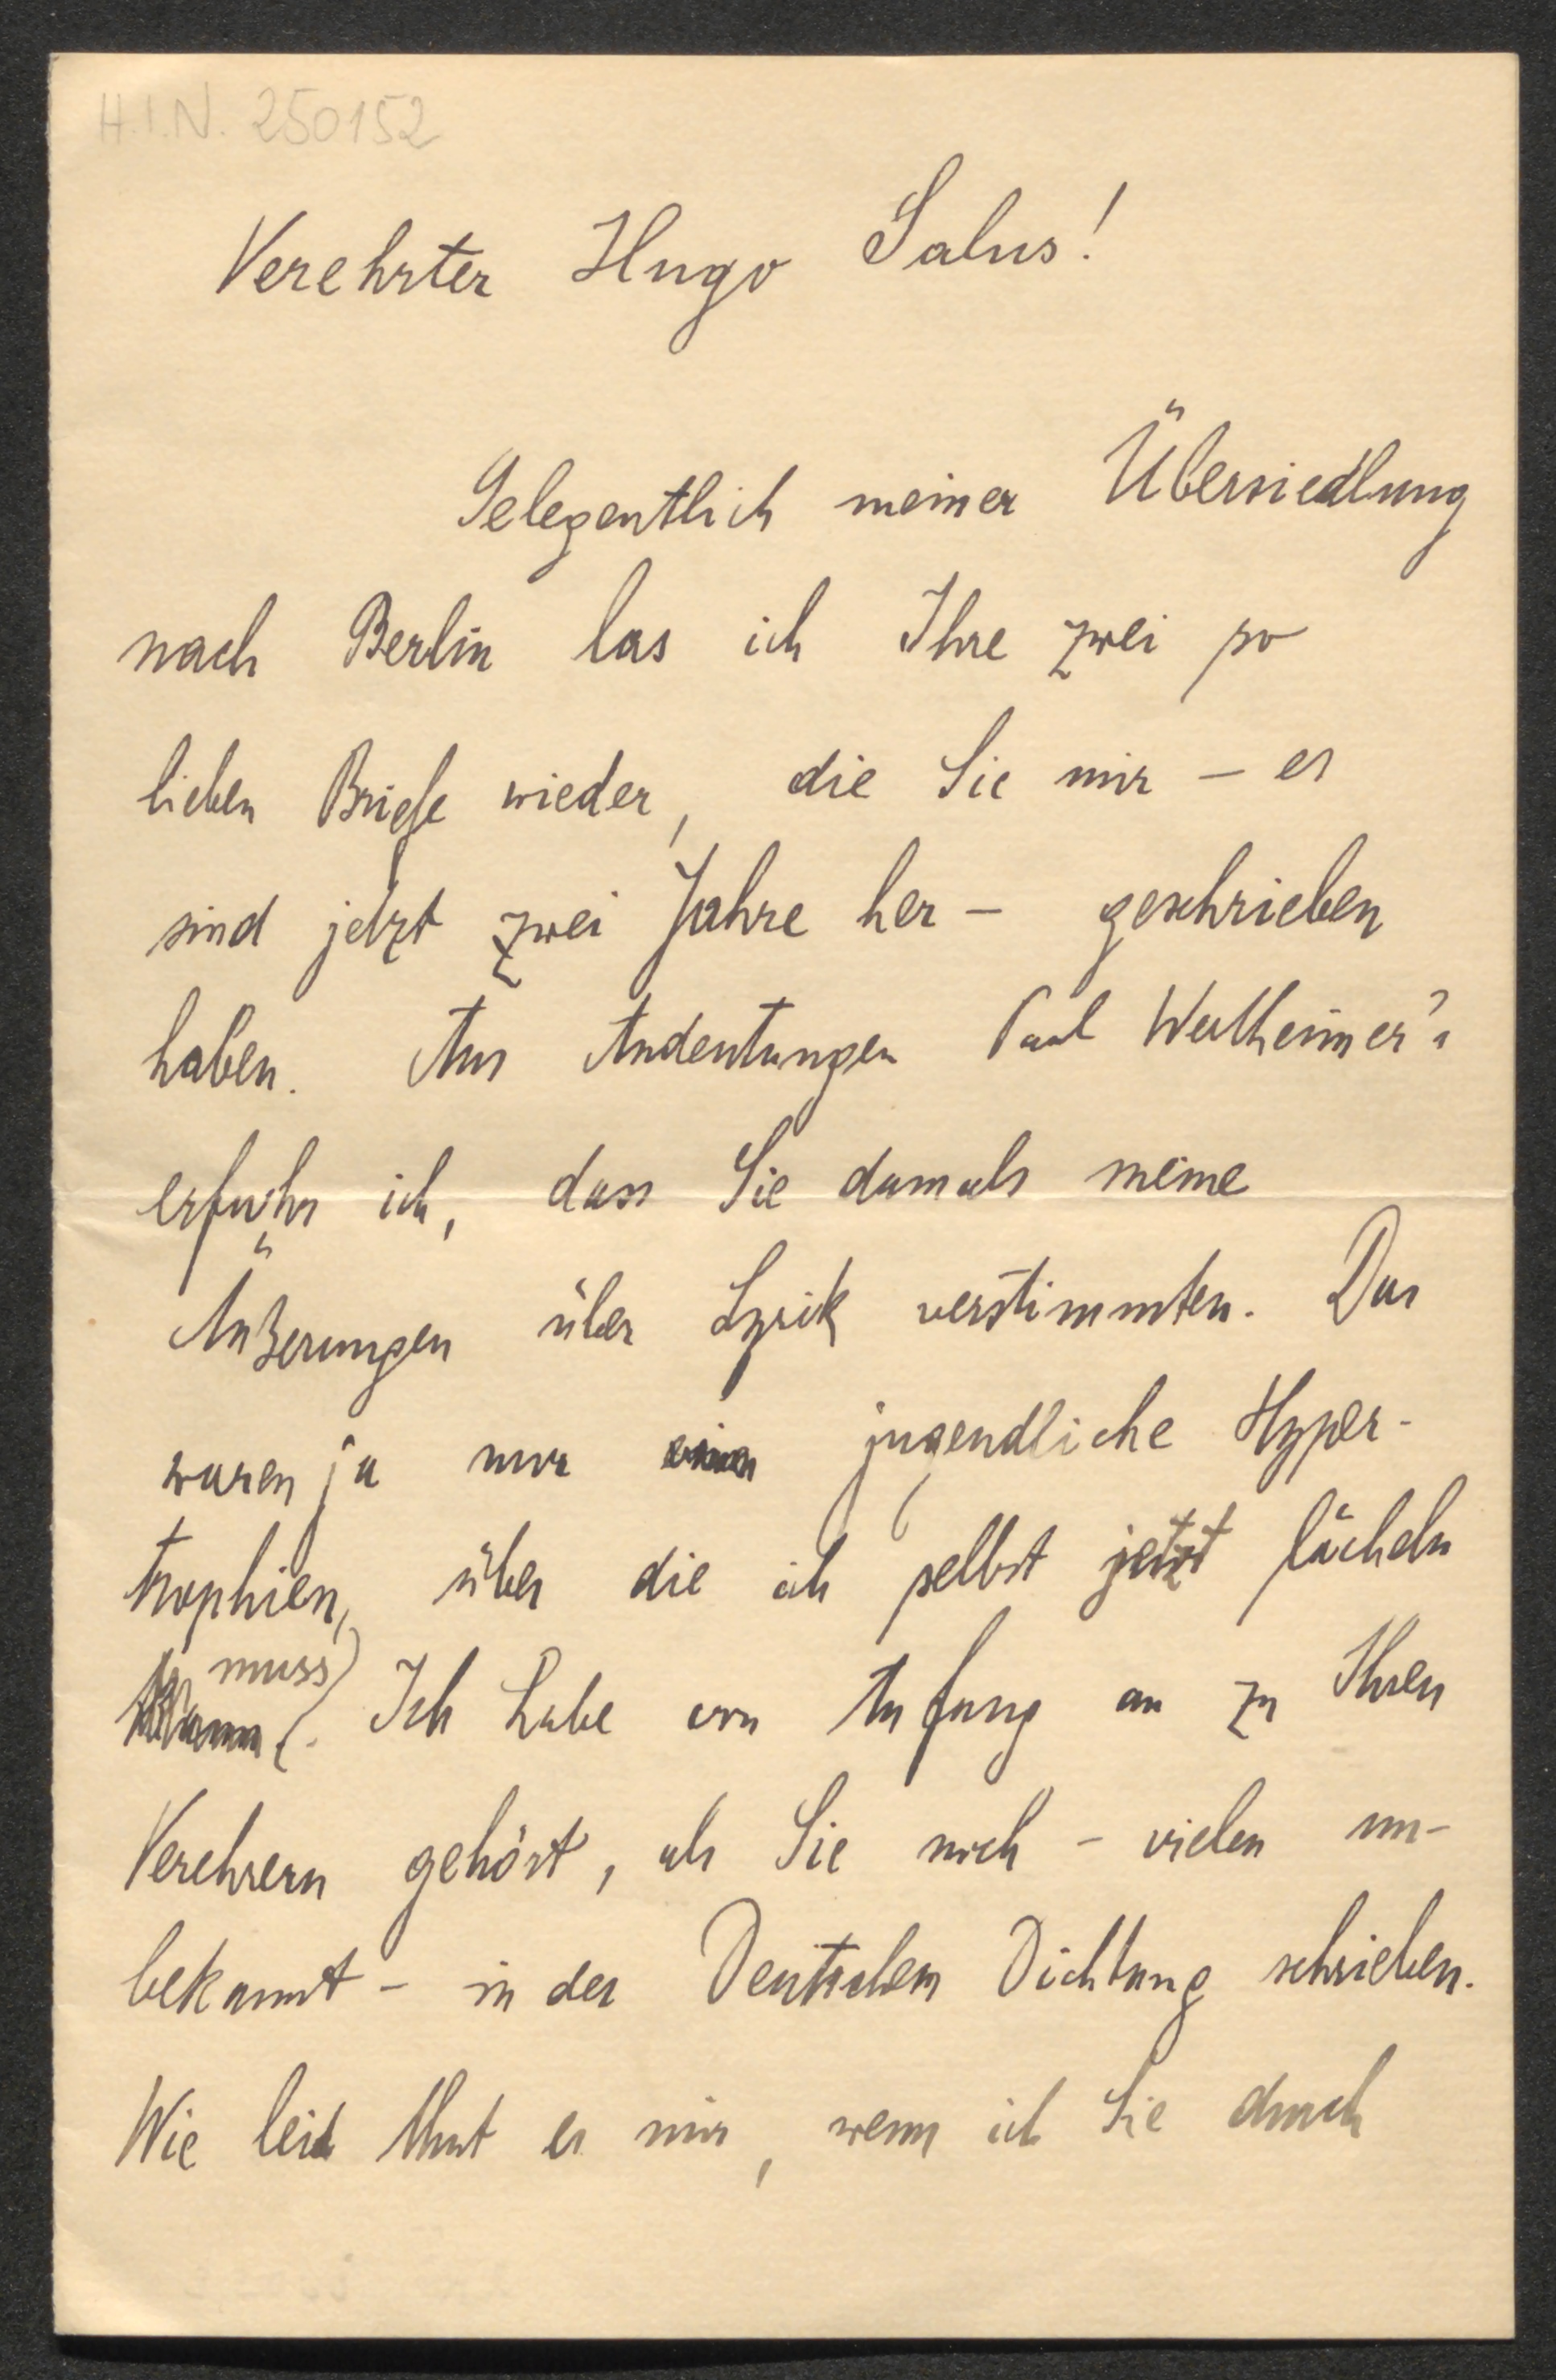 H.I.N. 250152
Verehrter Hugo Salus!
Gelegentlich meiner Übersiedlung
nach Berlin las ich Ihre zwei so
lieben Briefe wieder, die Sie mir – es
sind jetzt zwei Jahre her – geschrieben
haben. Aus Andeutungen Paul Wertheimer's
erfuhr ich, dass Sie damals meine
Äußerungen über Lyrik verstimmten. Das
waren ja nur jugendliche Hyper-
trophien, über die ich selbst jetzt lächeln
muss. Ich habe von Anfang an zu Ihren
Verehrern gehört, als Sie noch – vielen un-
bekannt – in der Deutschen Dichtung schrieben.
Wie leid thut es mir, wenn ich Sie durch